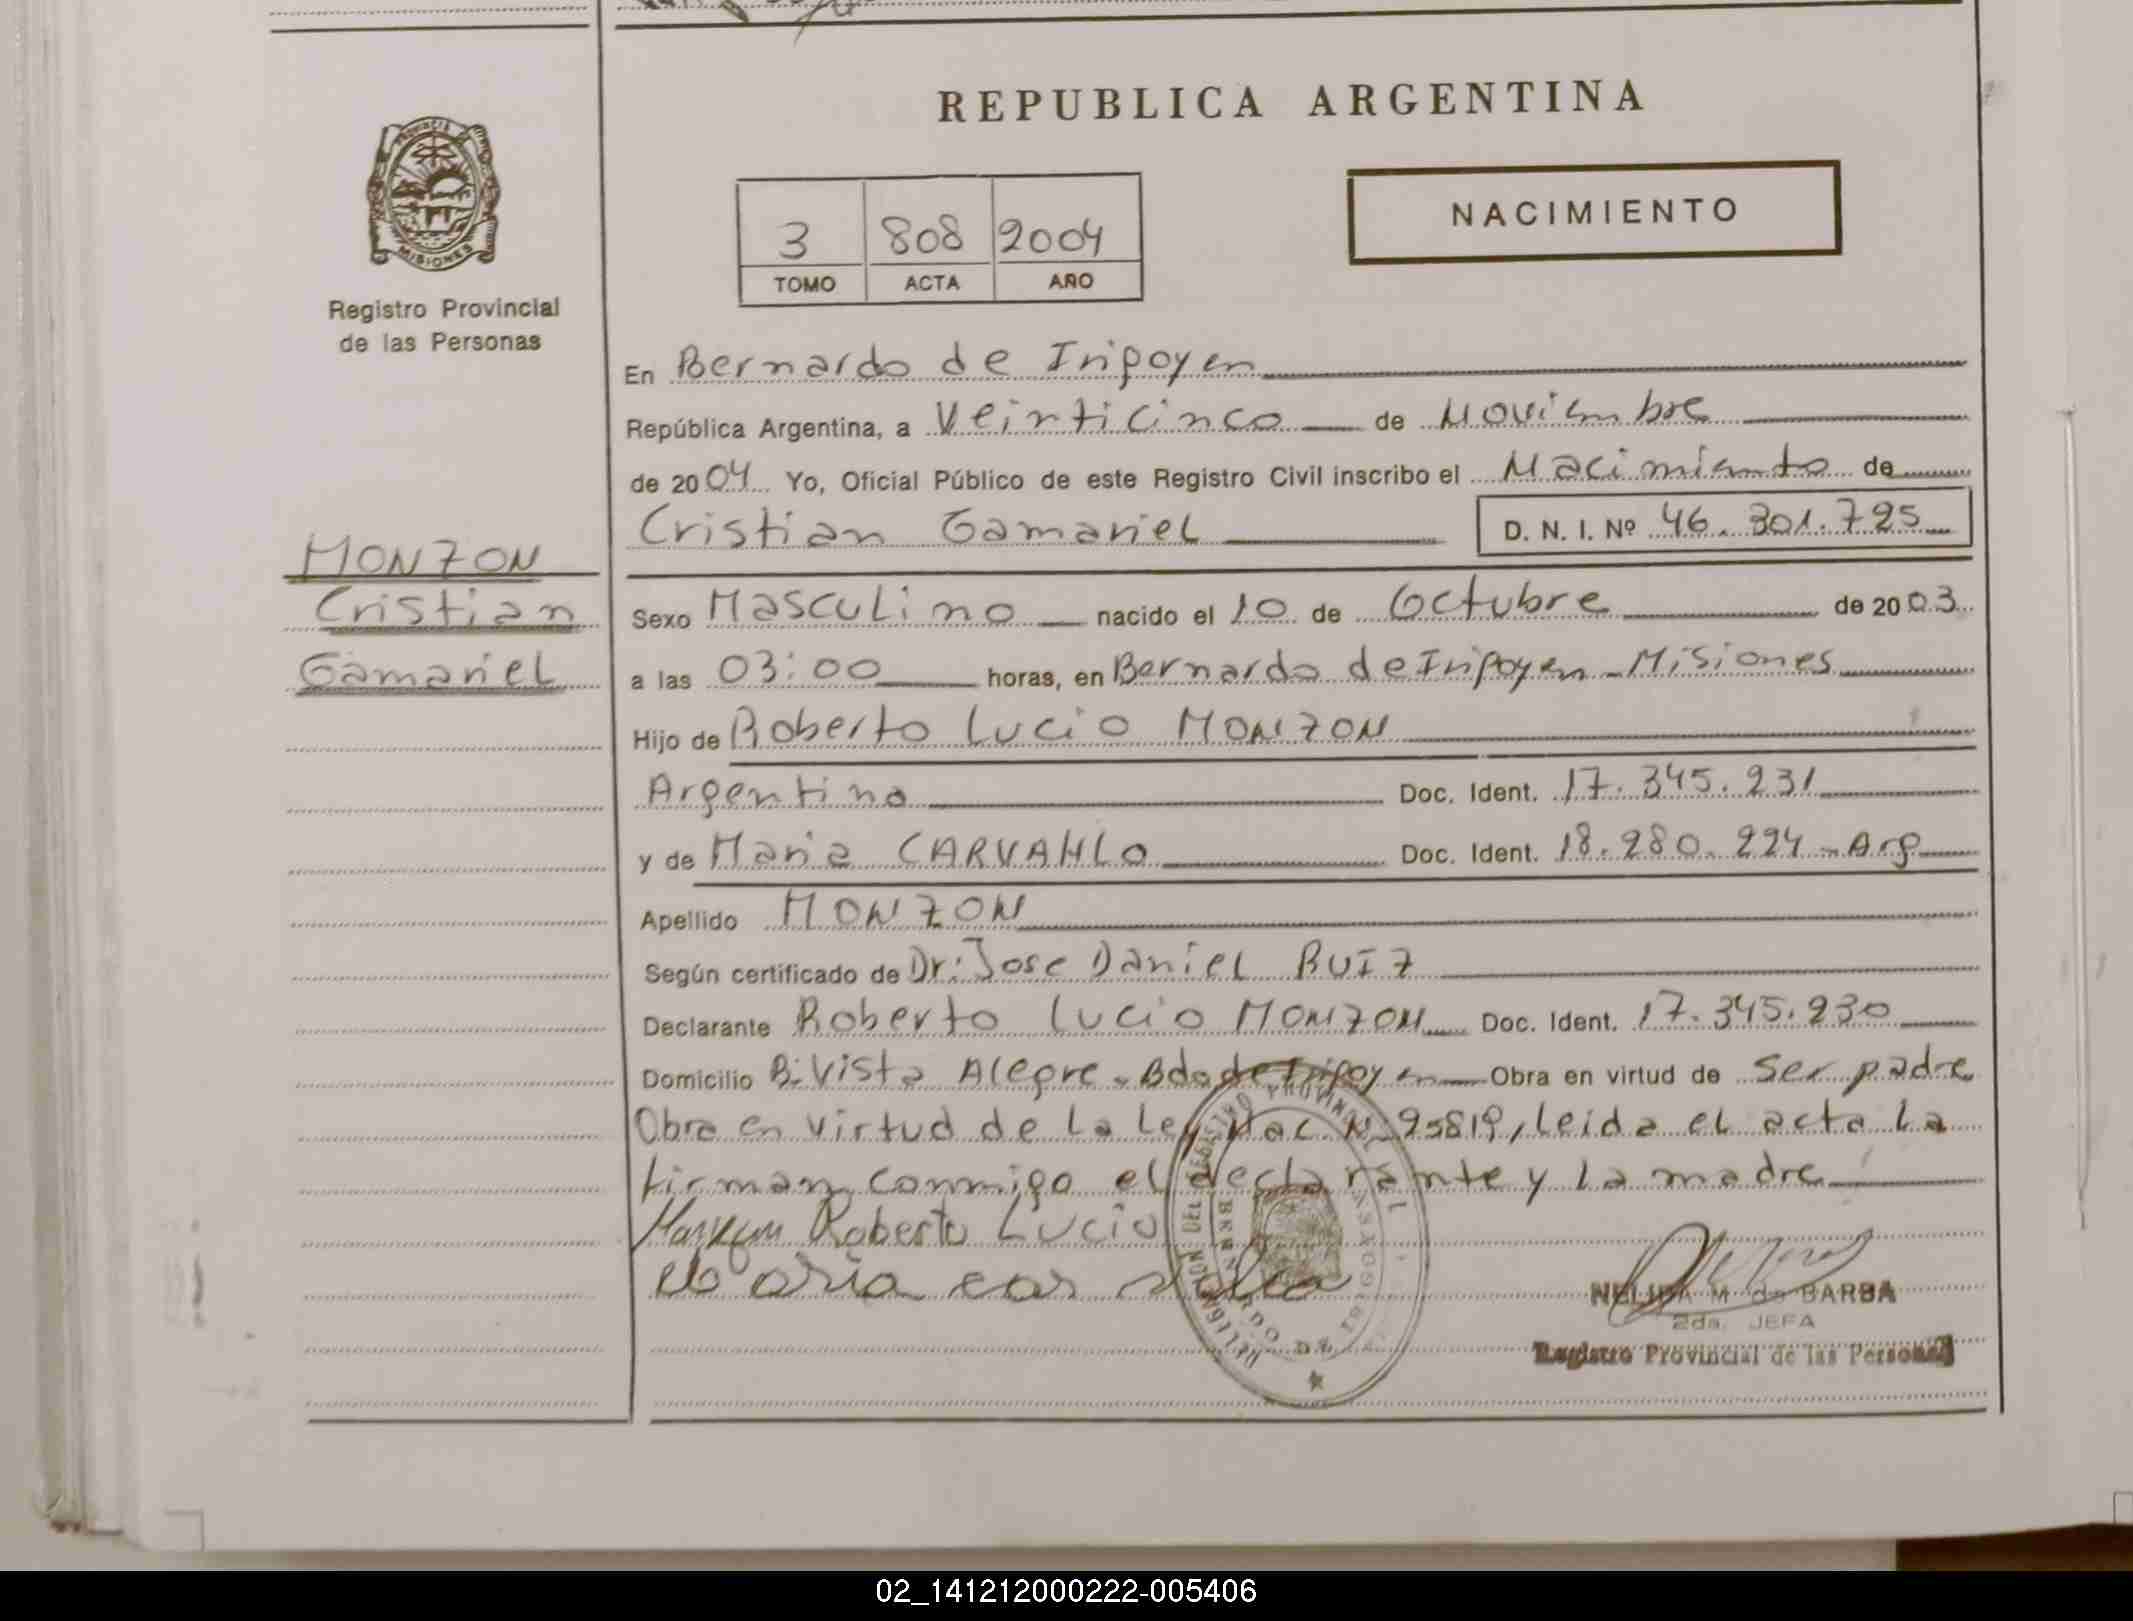 REPUBLICA ARGENTINA
PROVINCIA
MISIONES
Registro Provincial
de las Personas
3 808 2004
TOMO ACTA AÑO
NACIMIENTO
En Bernardo de Iripoyen
República Argentina, a Veinticinco de Noviembre
de 2004 Yo, Oficial Público de este Registro Civil inscribo el Nacimiento de
Cristian Gamariel D. N. I. Nº 46.301.725
MONZON
Cristian
Gamariel
Sexo Masculino nacido el 10 de Octubre de 2003
a las 03:00 horas, en Bernardo de Iripoyen - Misiones
Hijo de Roberto Lucio MONZON
Argentino Doc. Ident. 17.345.231
y de Maria CARVAHLO Doc. Ident. 18.280.224 - Arg
Apellido MONZON
Según certificado de Dr: Jose Daniel RUIZ
Declarante Roberto Lucio MONZON Doc. Ident. 17.345.230
Domicilio B: Vista Alegre - Bdo de Iripoyen Obra en virtud de ser padre
Obra en virtud de la Ley Nac. N 25819, leida el acta la
firman conmigo el declarante y la madre
Roberto Lucio
NELIDA M. de BARBA
2da. JEFA
Registro Provincial de las Personas
02_141212000222-005406